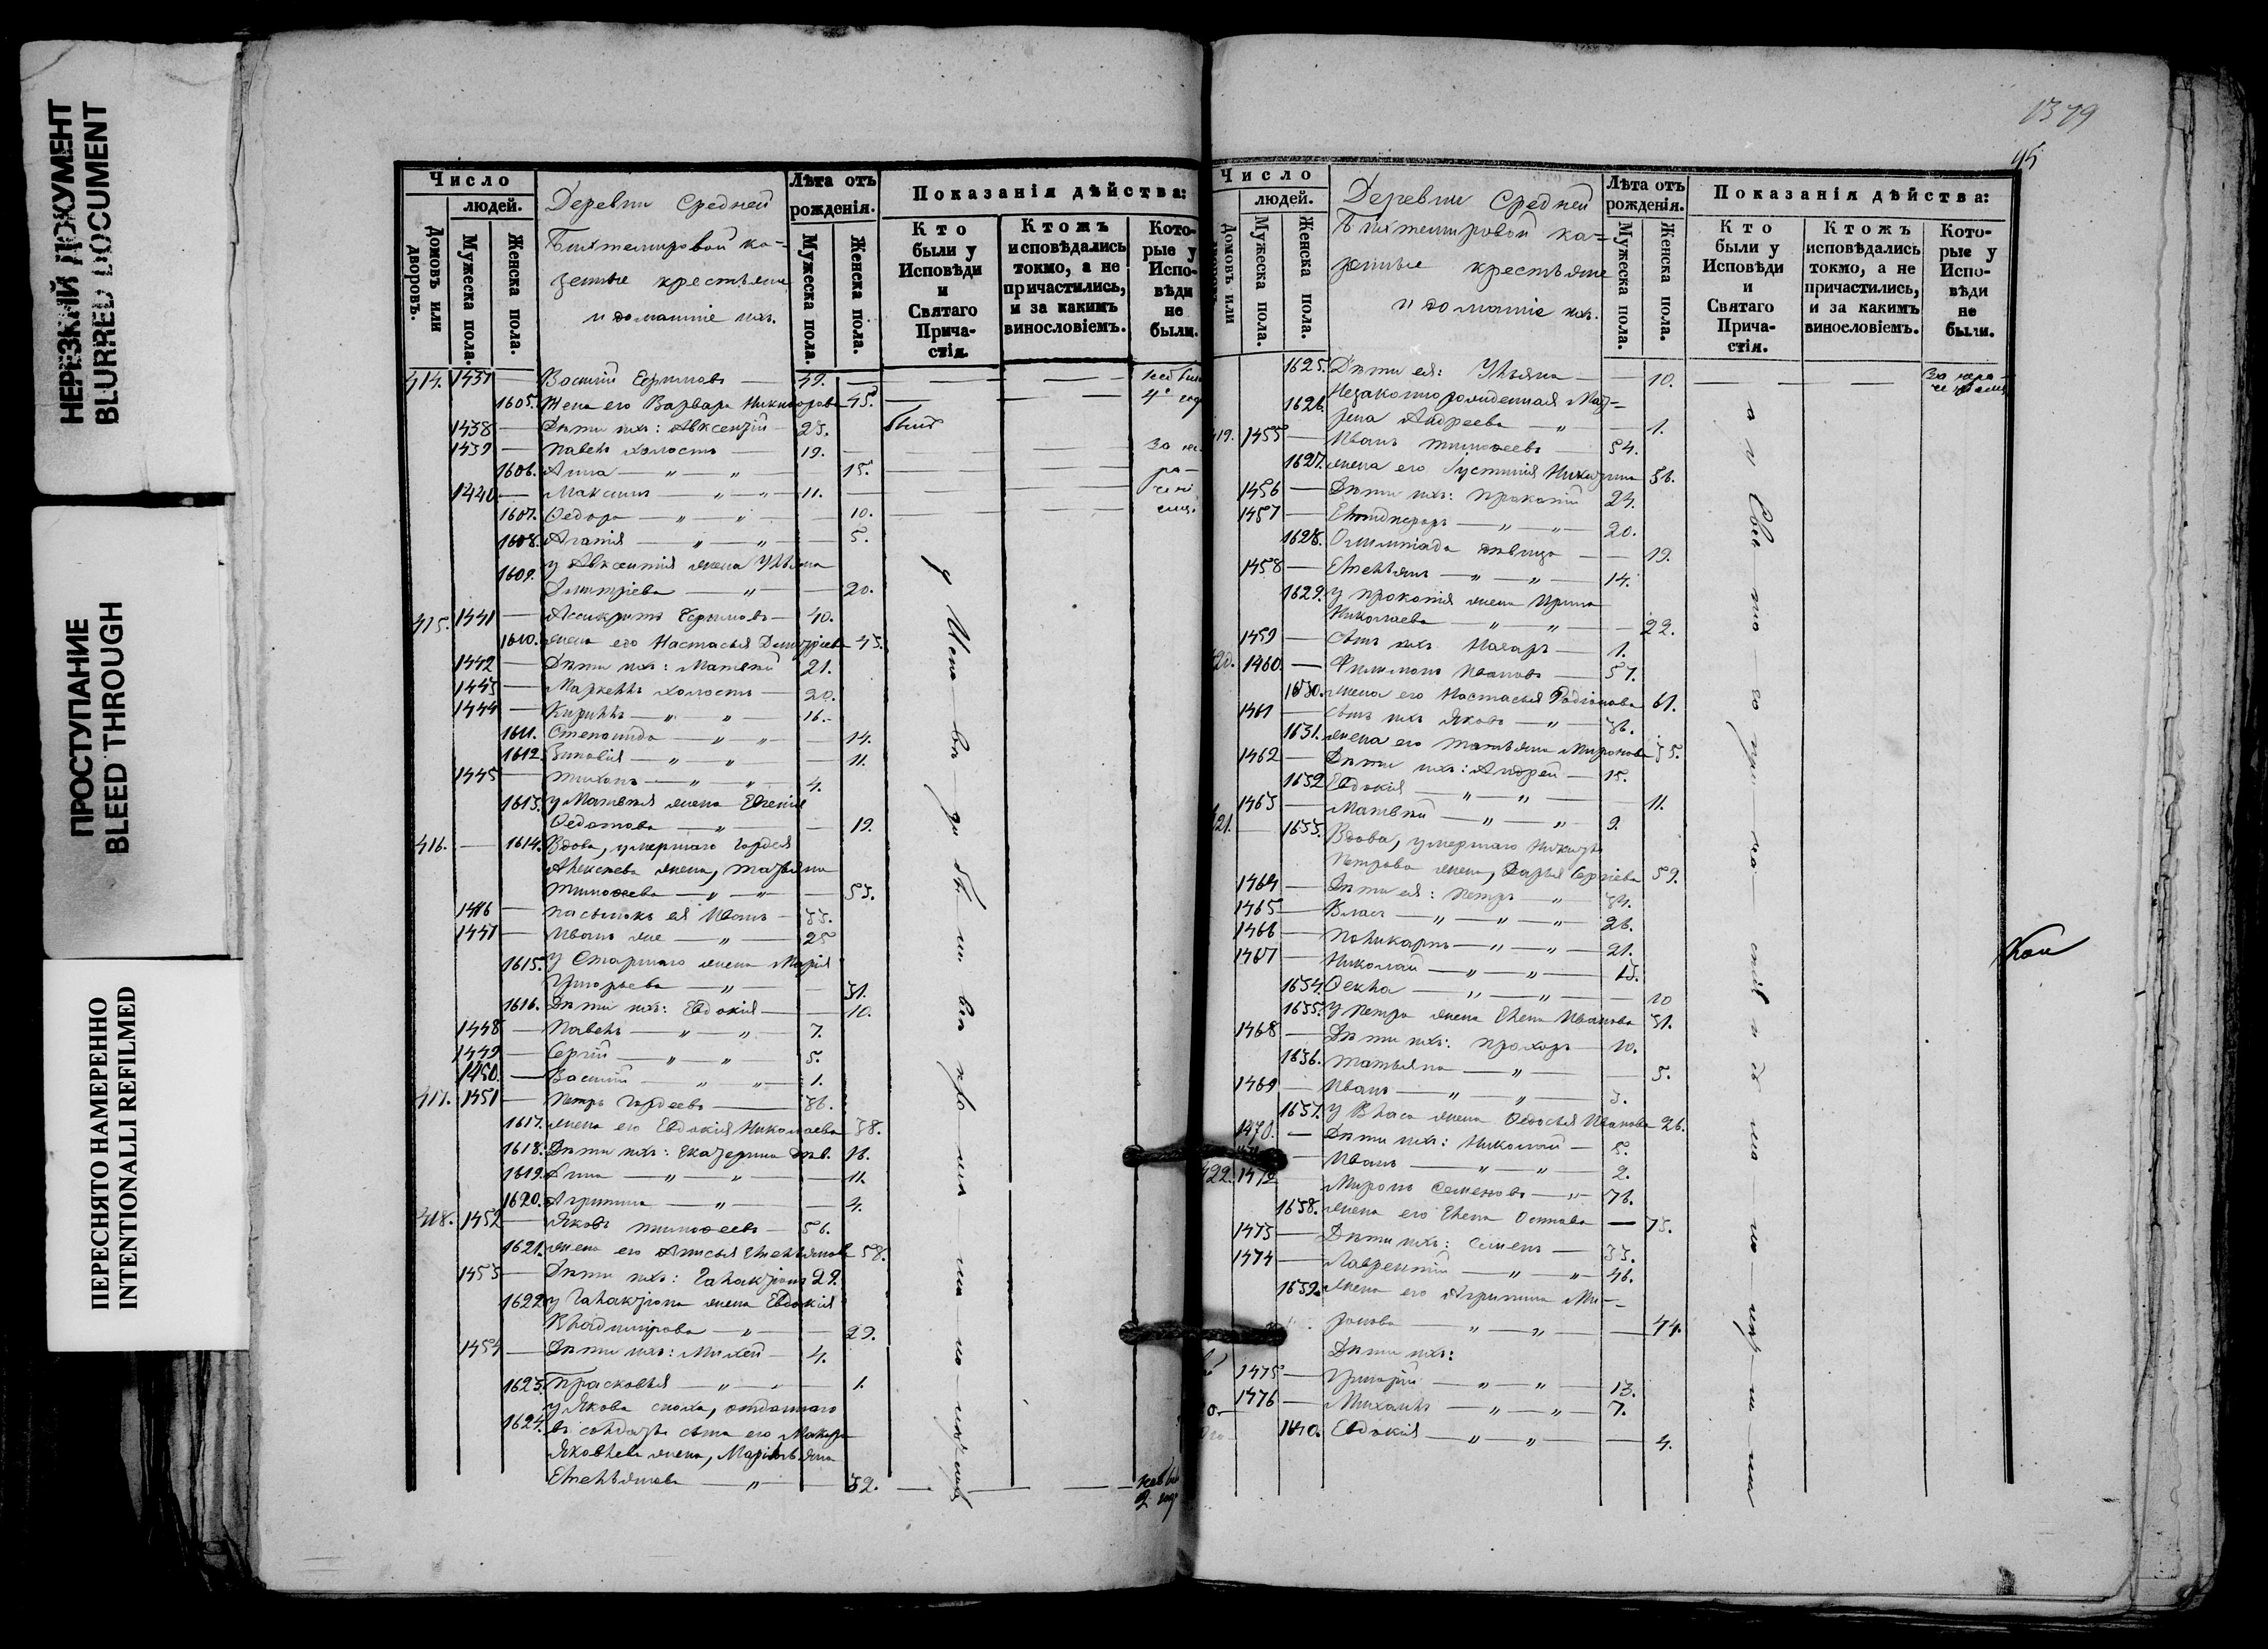 НЕРЕЗКИЙ ДОКУМЕНТ
BLURRED DOCUMENT
ПРОСТУПАНИЕ
BLEED THROUGH
ПЕРЕСНЯТО НАМЕРЕННО
INTENTIONALLI REFILMED
Число
людей.
Домовъ или дворовъ.
Мужеска пола.
Женска пола.
Деревни Средней
Бихтемировой ка-
зенные крестьяне
и домашніе ихъ.
Лѣта отъ рожденія.
Мужеска пола.
Женска пола.
Показанія дѣйства:
Кто были у Исповѣди и Святаго Прича-стія.
Ктожъ исповѣдались токмо, а не причастились, и за какимъ винословіемъ.
Кото-рые у Испо-вѣди не были.
414. 1437 — Василій Ефимовъ — 49. —
1605. Жена его Варвара Никифорова 45.
1438 — Дѣти ихъ: Авксентій — 23. былъ
1439 — Павелъ холостъ — 19. —
1606. Анна — „ — „ 15.
1440 — Максимъ — „ — „ 11.
1607. Ѳедора — „ — „ — 10.
1608. Агапія — „ — „ — 5.
1609. у Авксентія жена Ульяна
Дмитріева — „ — 20.
415. 1441 — Асинкритъ Ефимовъ — 40.
1610. жена его Настасья Дмитріева 43.
1442 — Дѣти ихъ: Матвей 21.
1443 — Маркеллъ холостъ — 20.
1444 — Кириллъ — „ — „ 16.
1611. Степанида — „ — „ — 14.
1612. Зиновія — „ — „ — 11.
1445 — Тихонъ — „ — „ — 4.
1613. у Матвея жена Евгенія
Ѳедотова — „ — 19.
416. — 1614. Вдова, умершаго Гордея
Алексеева жена, Татьяна
Тимофеева — „ — „ — 53.
1446 — пасынокъ ея Иванъ — 33.
1447 — Иванъ же — „ — 25
1615. у Старшаго жена Марія
Григорьева — „ — 31.
1616. Дѣти ихъ: Евдокія — 10.
1448 — Павелъ — „ — „ 7.
1449 — Сергій — „ — „ 5.
1450. — Василій — „ — „ 1.
417. 1451 — Петръ Гордеевъ — 36.
1617. жена его Евдокія Николаева 38.
1618. Дѣти ихъ: Екатерина дѣв. 16.
1619. Анна — „ — „ — 11.
1620. Агрипина — „ — 4.
418. 1452 — Яковъ Тимофеевъ — 56.
1621. жена его Анисья Емельянова 58.
1453 — Дѣти ихъ: Галактіонъ 29.
1622. у Галактіона жена Евдокія
Владимірова — „ — 29.
1454 — Дѣти ихъ: Михей — 4.
1623. Прасковья — „ — „ — 1.
у Якова сноха, отданнаго
1624. въ солдаты сына его Макара
Яковлева жена, Марія
Емельянова — „ — 32.
1379
95
Число
людей.
Домовъ или дворовъ.
Мужеска пола.
Женска пола.
Деревни Средней
Бихтемировой ка-
зенные крестьяне
и домашніе ихъ.
Лѣта отъ рожденія.
Мужеска пола.
Женска пола.
Показанія дѣйства:
Кто были у Исповѣди и Святаго Прича-стія.
Ктожъ исповѣдались токмо, а не причастились, и за какимъ винословіемъ.
Кото-рые у Испо-вѣди не были.
1625. Дѣти ея: Ульяна — — 10.
Незаконно рожденная Мат-
1626. рена Андреева — „ — 1.
419. 1455 — Иванъ Тимофеевъ 54.
1627. жена его Іустинія Никитина 56.
1456 — Дѣти ихъ: Прокопій 24.
1457 — Елпидифоръ — „ — „ 20.
1628. Олимпіада дѣвица — — 19.
1458 — Емельянъ — „ — „ — 14.
1629. у Прокопія жена Ирина
Николаева — „ — „ — 22.
1459 — сынъ ихъ Назаръ — 1.
420. 1460. — Филимонъ Ивановъ — 57.
1630. жена его Настасья Родіонова 61.
1461 — сынъ ихъ Яковъ — „ — 36.
1631. жена его Татьяна Миронова 35.
1462 — Дѣти ихъ: Андрей — 15.
1632 Евдокія — „ — „ — 11.
1463 — Матвей — „ — „ 9.
421. — 1633. Вдова, умершаго Никиты
Петрова жена, Дарья Сергіева 59.
1464 — Дѣти ея: Петръ — „ 34.
1465 — Власъ — „ — „ — „ 26.
1466 — Поликарпъ — „ — „ 21.
1467 — Николай — „ — „ 13.
1634. Ѳекла — „ — „ — 10
1635. у Петра жена Елена Иванова 31.
1468 — Дѣти ихъ: Прохоръ — 10.
1636. Татьяна — „ — 5.
1469 — Иванъ — „ — „ 3.
1637. у Власа жена Ѳедосья Иванова 26.
1470. — Дѣти ихъ: Николай — 5.
— Иванъ — „ — „ 2.
422. 1472 Миронъ Семеновъ — „ 76.
1638. жена его Елена Осипова — 75.
1473 — Дѣти ихъ: Семенъ — 33.
1474 — Лаврентій — „ — „ 46.
1639. жена его Агрипина Ми-
ронова — „ — „ — 44.
Дѣти ихъ:
1475 — Григорій — „ — „ 13.
1476 — Михаилъ — „ — „ 7.
1640. Евдокія — „ — „ — 4.